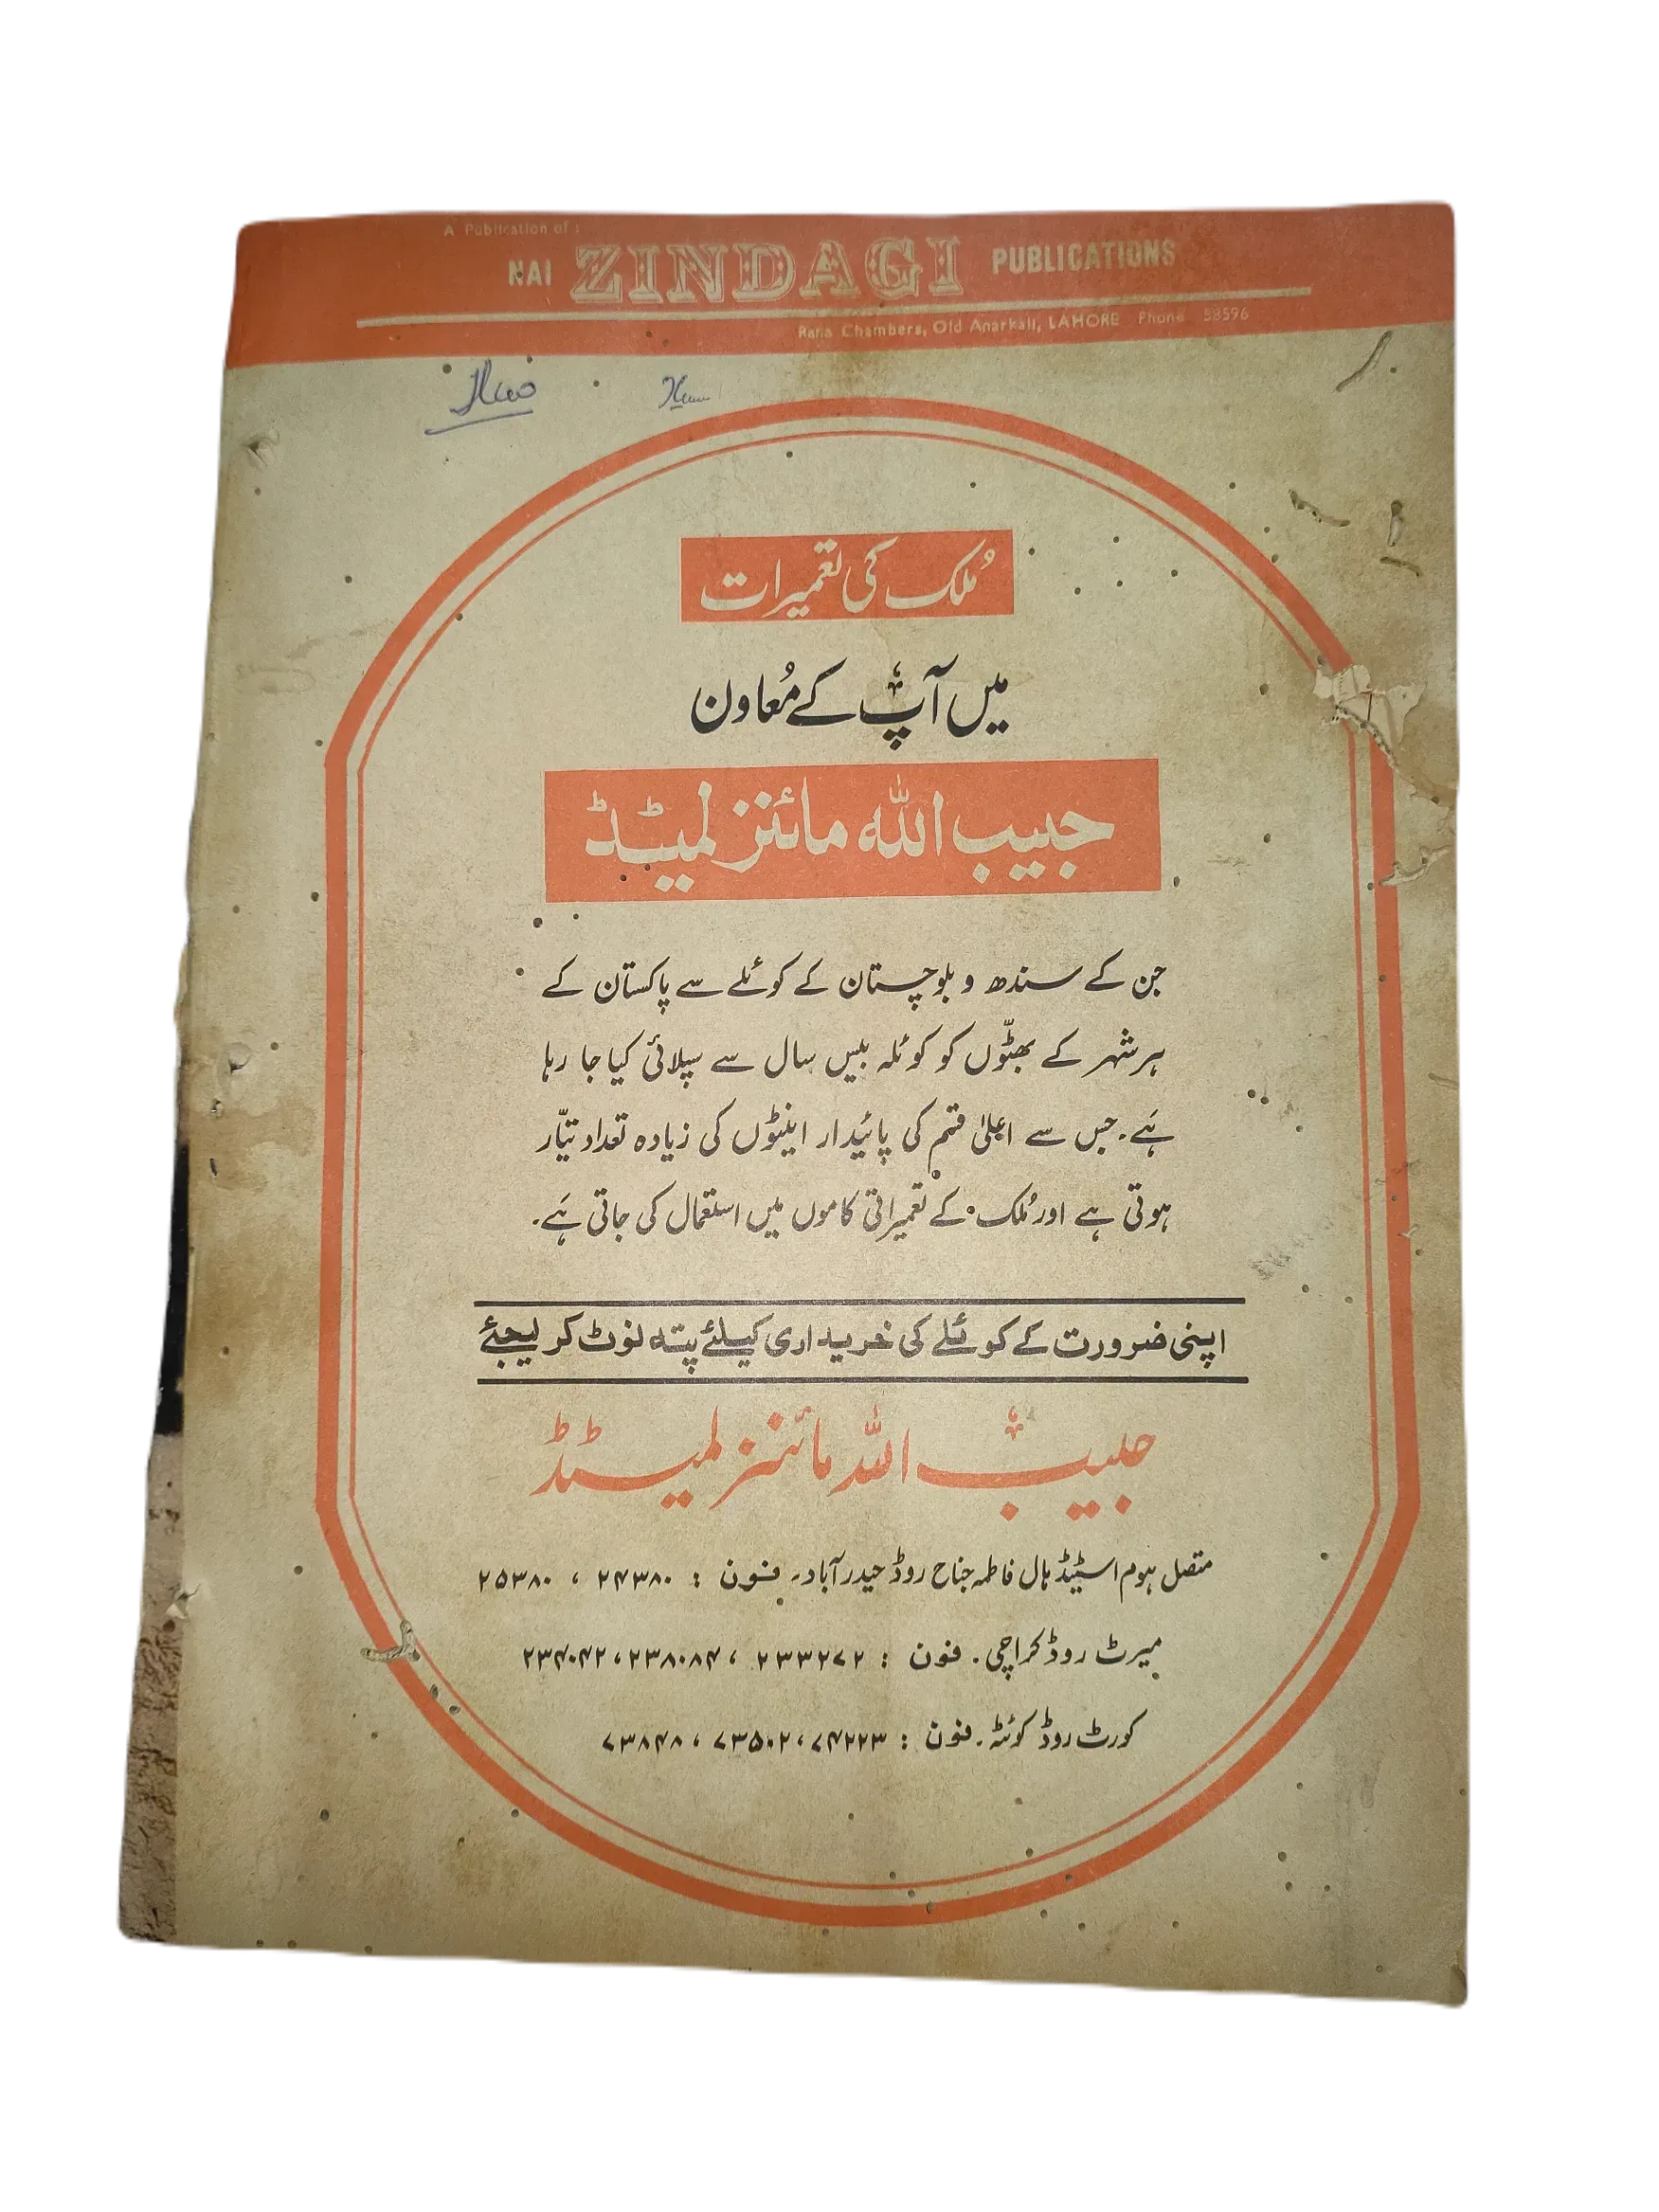 A Publication of :
NAI ZINDAGI PUBLICATIONS
Rana Chambers, Old Anarkali, LAHORE Phone 58596
مُلک کی تعمیرات
میں آپ کے مُعاون
حبیب اللہ مائنز لمیٹڈ
جن کے سندھ و بلوچستان کے کوئلے سے پاکستان کے
ہر شہر کے بھٹّوں کو کوئلہ بیس سال سے سپلائی کیا جا رہا
ہَے۔ جس سے اعلیٰ قسم کی پائیدار اینٹوں کی زیادہ تعداد تیّار
ہوتی ہے اور مُلک کے تعمیراتی کاموں میں استعمال کی جاتی ہَے۔
اپنی ضرورت کے کوئلے کی خریداری کیلئے پتہ نوٹ کر لیجئے
حبیب اللہ مائنز لمیٹڈ
متصل ہوم اسٹیڈ ہال فاطمہ جناح روڈ حیدرآباد۔ فون : ۲۴۳۸۰ ، ۲۵۳۸۰
میرٹ روڈ کراچی۔ فون : ۲۳۳۲۷۲ ، ۲۳۸۰۸۴ ، ۲۳۴۰۴۲
کورٹ روڈ کوئٹہ۔ فون : ۷۴۲۲۳ ، ۷۳۵۰۲ ، ۷۳۸۴۸